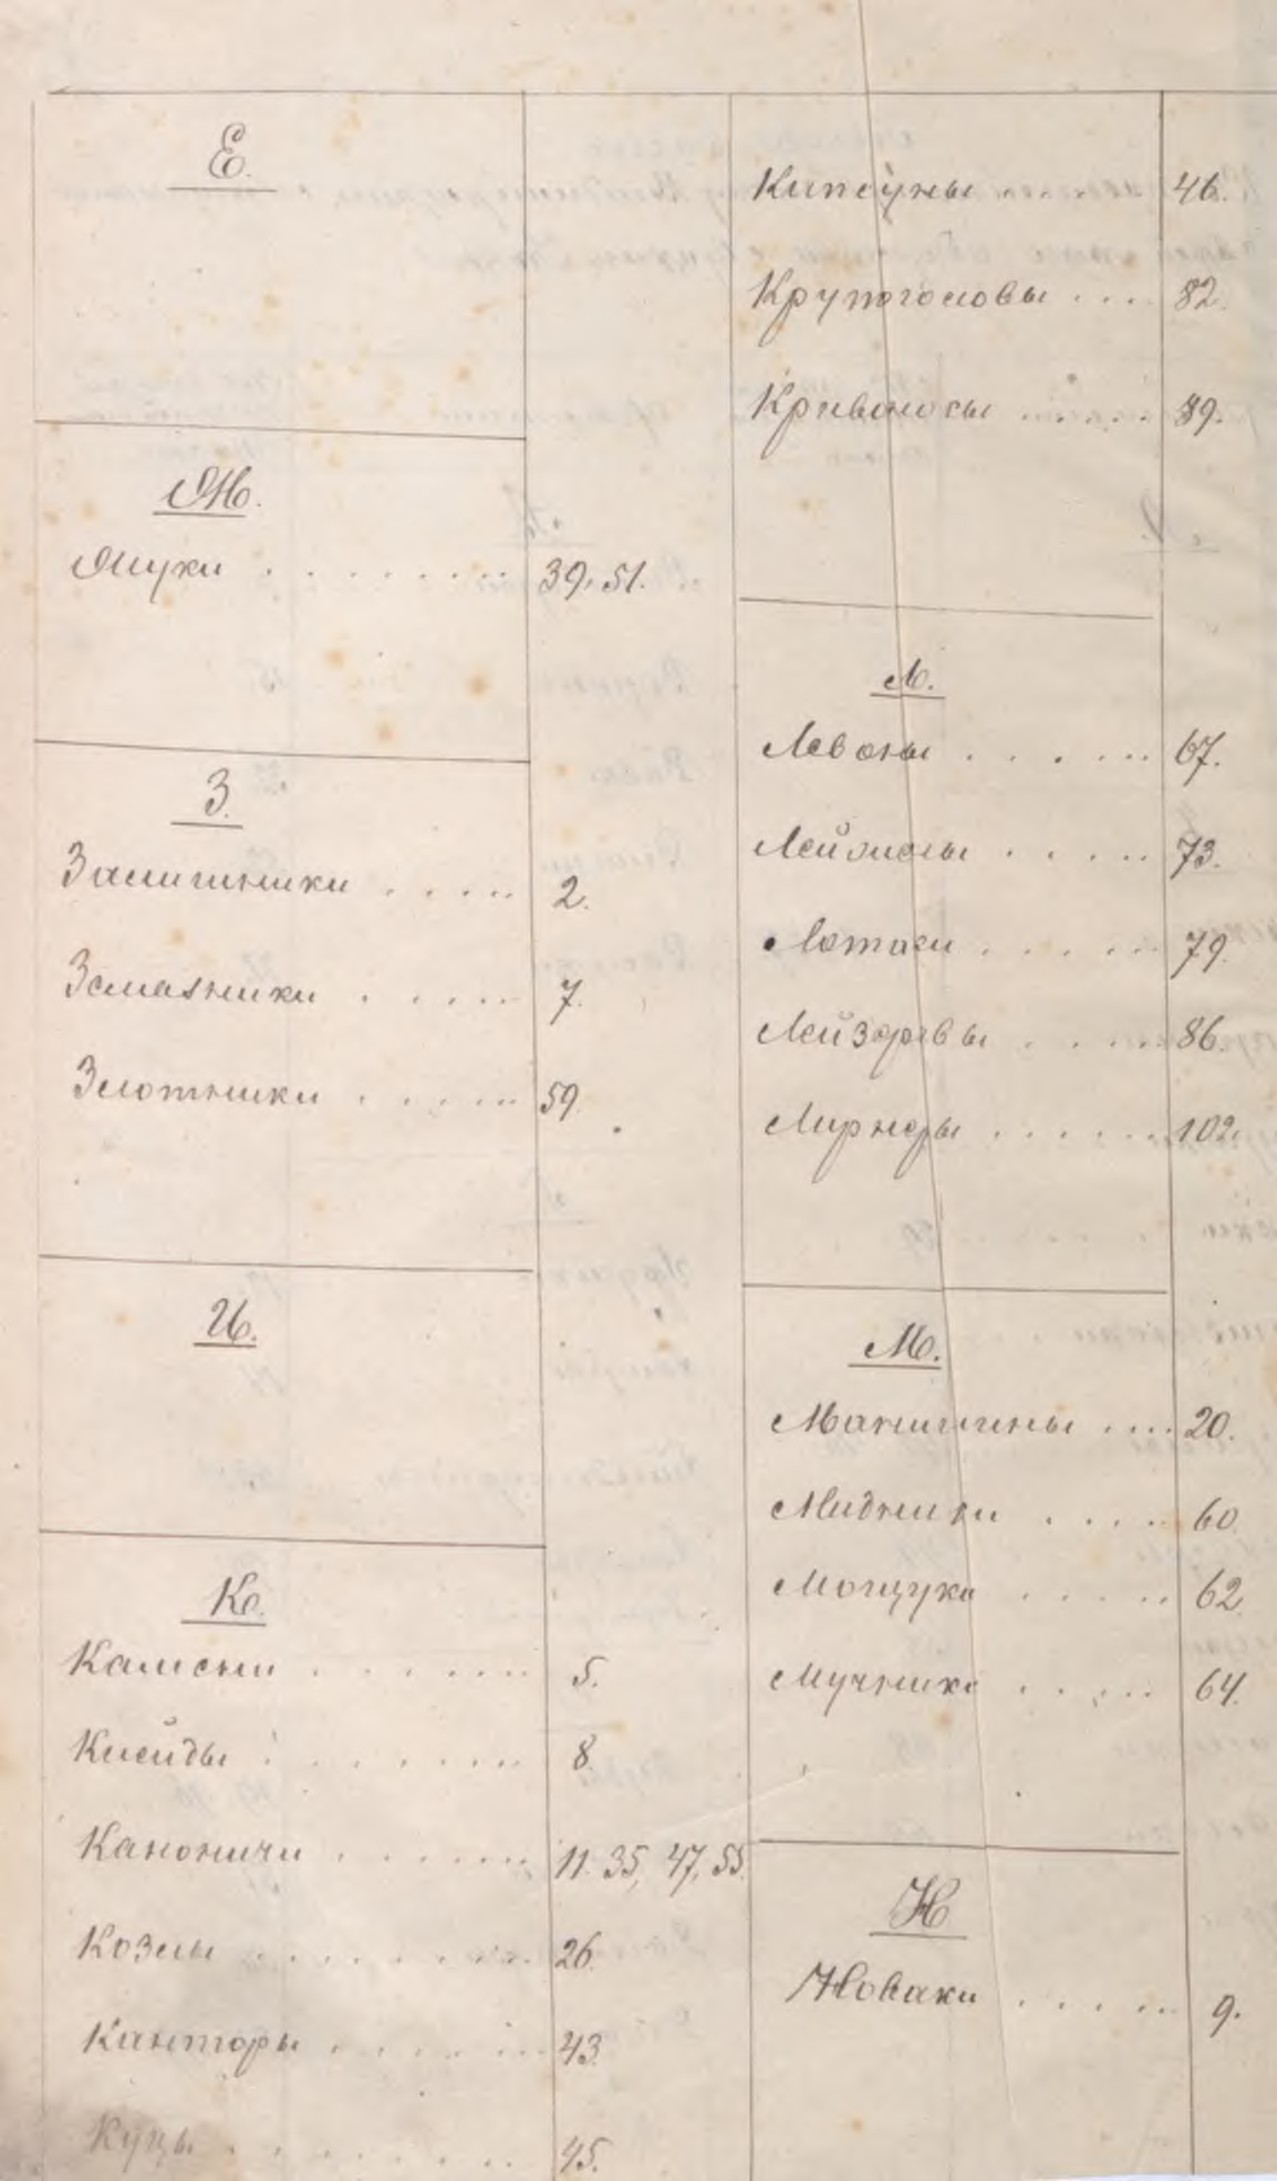 Е.
Ж.
Жуки . . . . . . . . . 39, 51.
З.
Замишники . . . . . 2.
Земляники . . . . . 7.
Злотники . . . . . 59.
И.
К.
Камени . . . . . . 5.
. . . . . . . 8.
Канончи . . . . . . 11. 35, 47, 55.
Козлы . . . . . . . . 26.
Канторы . . . . . . 43.
Куцы . . . . . . . . 45.
Кипсуны . . . . . . 46.
Крутоголовы . . . 82.
Кривоносы . . . . . 89.
Л.
Левоны . . . . . . 67.
. . . . . 73.
Лотаки . . . . . 79.
Лейзоровы . . . . 86.
Лирнеры . . . . . . 102.
М.
Манишины . . . . 20.
Мидники . . . . 60.
. . . . . 62.
Мучники . . . . . 64.
Н
Новаки . . . . . 9.